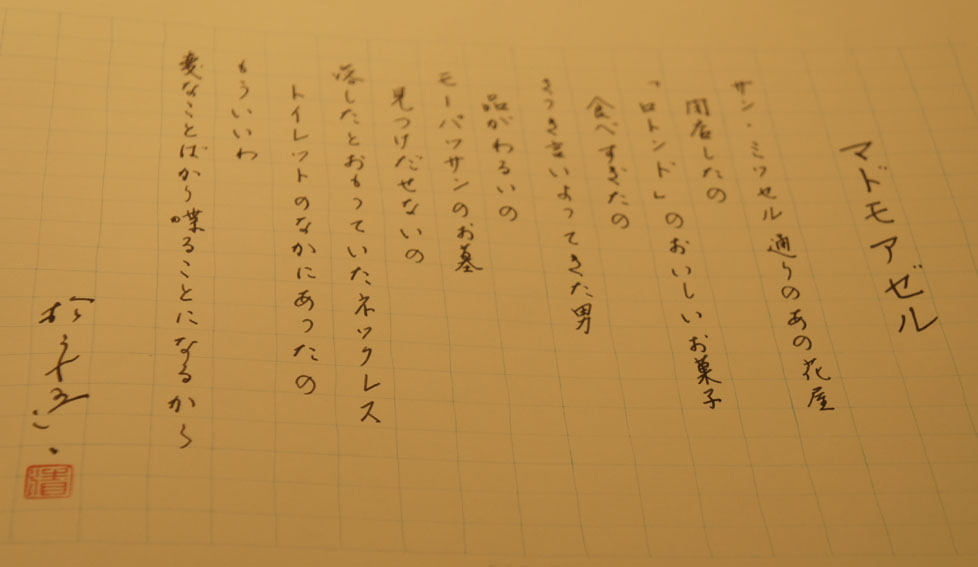 マドモアゼル
サン・ミッセル通りのあの花屋
閉店したの
「ロトンド」のおいしいお菓子
食べすぎたの
さっき言いよってきた男
品がわるいの
モーパッサンのお墓
見つけだせないの
落したとおもっていたネックレス
トイレットのなかにあったの
もういいわ
変なことばかり喋ることになるから